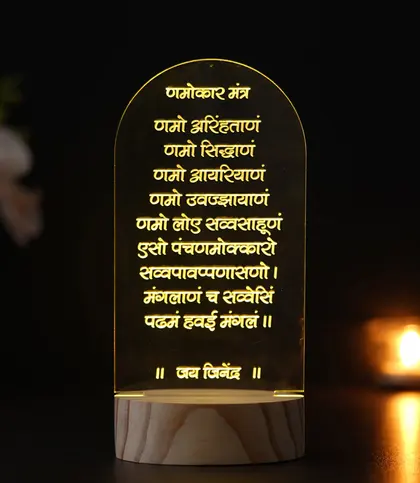 णमोकार मंत्र
णमो अरिंहताणं
णमो सिद्धाणं
णमो आयरियाणं
णमो उवज्झायाणं
णमो लोए सव्वसाहूणं
एसो पंचणमोक्कारो
सव्वपावप्पणासणो ।
मंगलाणं च सव्वेसिं
पढमं हवई मंगलं ॥
॥ जय जिनेंद्र ॥